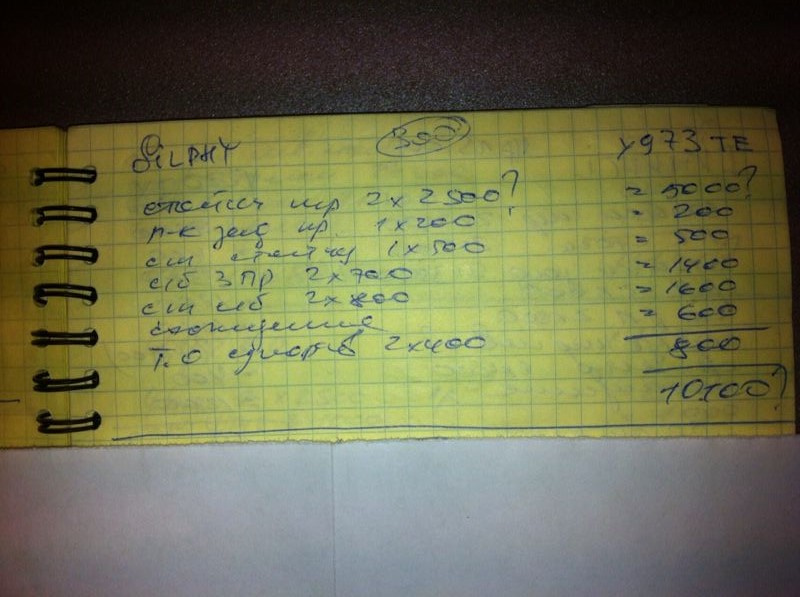 SiLPHY 300 У973ТЕ
2 x 2500? = 5000?
п-к зад пр. 1 x 200 = 200
сш 1 x 500 = 500
с/б З ПР 2 x 700 = 1400
сш с/б 2 x 800 = 1600
схождение = 600
Т.О суппортов 2 x 400 800
10100?